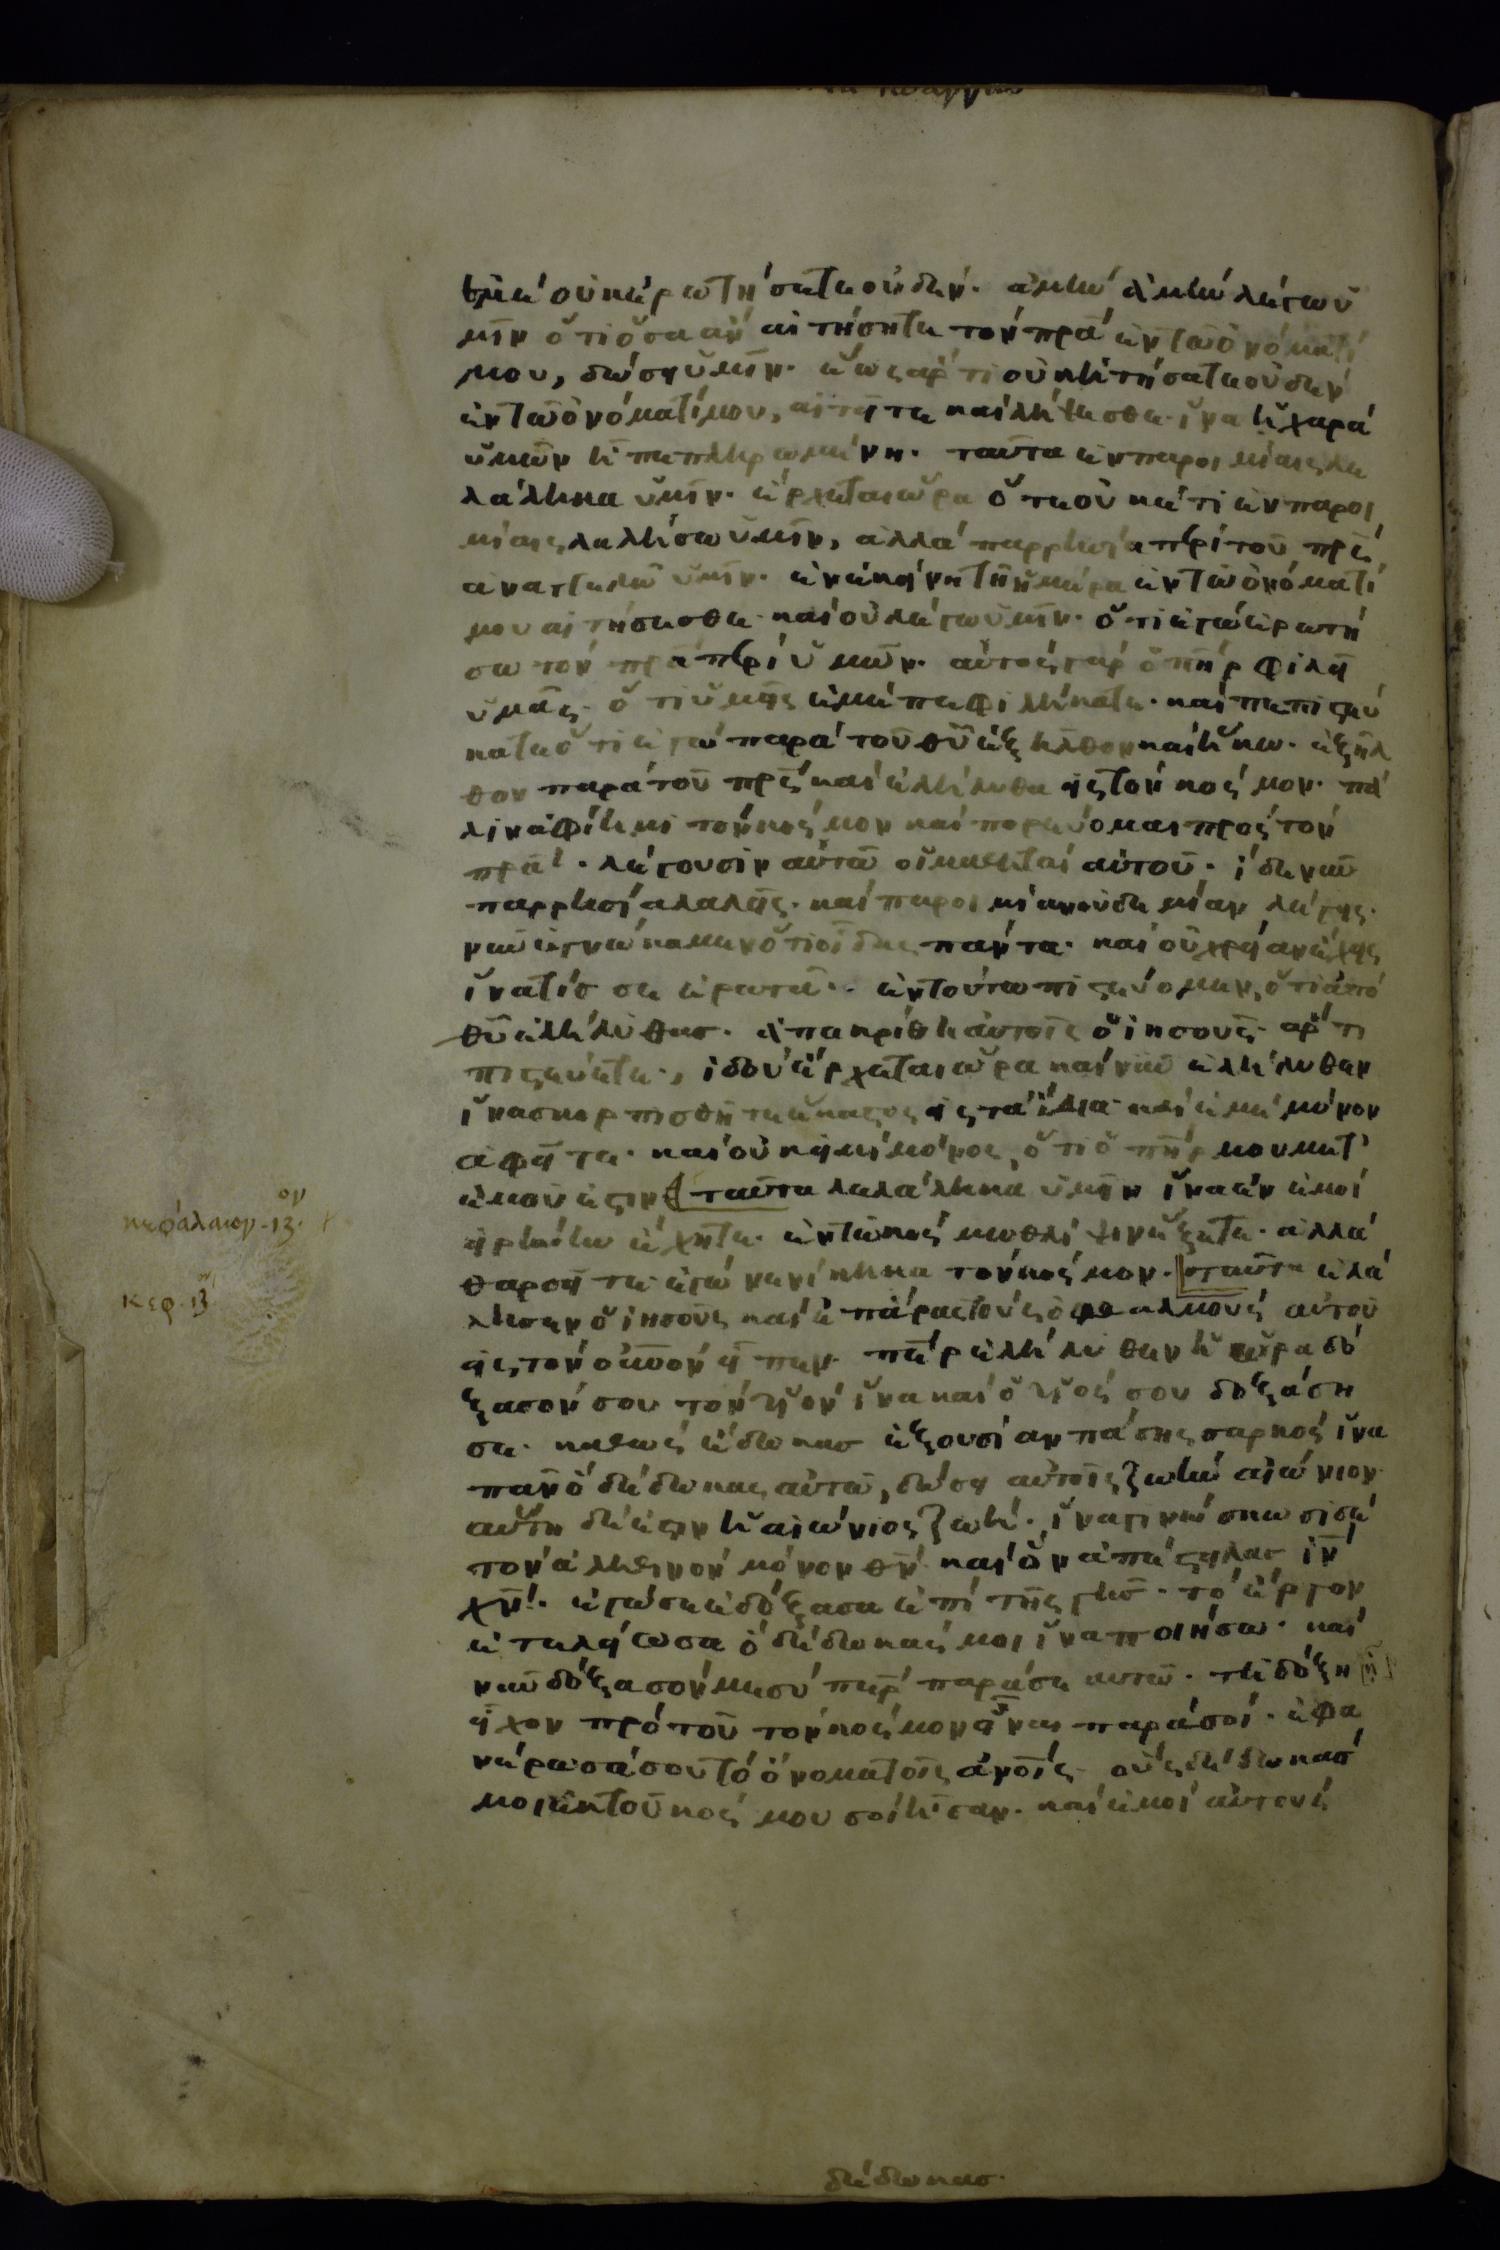 ἐμὲ οὐκ ἐρωτήσετε οὐδέν. ἀμὴν ἀμὴν λέγω ὑ
μῖν ὅτι ὅσα ἂν αἰτήσητε τὸν πρα ἐν τῶ ὀνόματί
μου, δώσει ὑμῖν. ἕως ἄρτι οὐκ ἠτήσατε οὐδὲν
ἐν τῶ ὀνόματί μου, αἰτεῖτε καὶ λήψεσθε. ἵνα ἡ χαρὰ
ὑμῶν ἦ πεπληρωμένη. ταῦτα ἐν παροιμίαις λε
λάληκα ὑμῖν. ἔρχεται ὥρα ὅτε οὐκέτι ἐν παροι
μίαις λαλήσω ὑμῖν, ἀλλὰ παρρησία περὶ τοῦ πρς
ἀναγγελῶ ὑμῖν. ἐν ἐκείνη τῆ ἡμέρα ἐν τῶ ὀνόματί
μου αἰτήσεσθε. καὶ οὐ λέγω ὑμῖν. ὅτι ἐγὼ ἐρωτή
σω τὸν πρα περὶ ὑμῶν. αὐτὸς γὰρ ὁ πηρ φιλεῖ
ὑμᾶς. ὅτι ὑμεῖς ἐμὲ πεφιλήκατε. καὶ πεπιστεύ
κατε ὅτι ἐγὼ παρὰ τοῦ θυ ἐξῆλθον καὶ ἥκω. ἐξῆλ
θον παρὰ τοῦ πρς καὶ ἐλήλυθα εἰς τὸν κόσμον. πά
λιν ἀφίημι τὸν κόσμον καὶ πορεύομαι πρὸς τὸν
πρα. λέγουσιν αὐτῶ οἱ μαθηταὶ αὐτοῦ. ἴδε νῦν
παρρησία λαλεῖς. καὶ παροιμίαν οὐδεμίαν λέγεις.
νῦν ἐγνώκαμεν ὅτι οἶδας πάντα. καὶ οὐ χρείαν ἔχεις
ἵνα τίς σε ἐρωτᾶ. ἐν τούτω πιστεύομεν, ὅτι ἀπὸ
θυ ἐλήλυθας. ἀπεκρίθη αὐτοῖς ὁ ἰησοῦς. ἄρτι
πιστεύετε., ἰδοὺ ἔρχεται ὥρα καὶ νῦν ἐλήλυθεν
ἵνα σκορπισθῆτε ἕκαστος εἰς τὰ ἴδια. καὶ ἐμὲ μόνον
ἀφῆτε. καὶ οὐκ εἰμὶ μόνος, ὅτι ὁ πηρ μου μετ'
ἐμοῦ ἐστιν. ταῦτα λελάληκα ὑμῖν ἵνα ἐν ἐμοὶ
εἰρήνην ἔχητε. ἐν τῶ κόσμω θλίψιν ἕξετε. ἀλλὰ
θαρσεῖτε ἐγὼ νενίκηκα τὸν κόσμον. ταῦτα ἐλά
λησεν ὁ ἰησοῦς καὶ ἐπάρας τοὺς ὀφθαλμοὺς αὐτοῦ
εἰς τὸν οὐνον εἶπεν. πηρ ἐλήλυθεν ἡ ὥρα δό
ξασόν σου τὸν υἱὸν ἵνα καὶ ὁ υἱός σου δοξάση
σε. καθὼς ἔδωκας ἐξουσίαν πάσης σαρκὸς ἵνα
πᾶν ὃ δέδωκας αὐτῶ, δώσει αὐτοῖς ζωὴν αἰώνιον.
αὕτη δέ ἐστιν ἡ αἰώνιος ζωή. ἵνα γινώσκωσί σε
τὸν ἀληθινὸν μόνον θν καὶ ὃν ἀπέστειλας ιν
χν. ἐγώ σε ἐδόξασα ἐπὶ τῆς γῆς. τὸ ἔργον
ἐτελείωσα ὃ δέδωκάς μοι ἵνα ποιήσω. καὶ
νῦν δόξασόν με σὺ πηρ παρά σε αυτῶ. τῆ δόξη ἧ
εἶχον πρὸ τοῦ τὸν κόσμον εἶναι παρὰ σοί. ἐφα
νέρωσά σου τὸ ὄνομα τοῖς ἀνοις. οὓς δέδωκάς
μοι ἐκ τοῦ κόσμου σοὶ ἦσαν. καὶ ἐμοὶ αὐτοὺς
κεφάλαιον. ιζ.
κεφ. ιζ
δέδωκας.